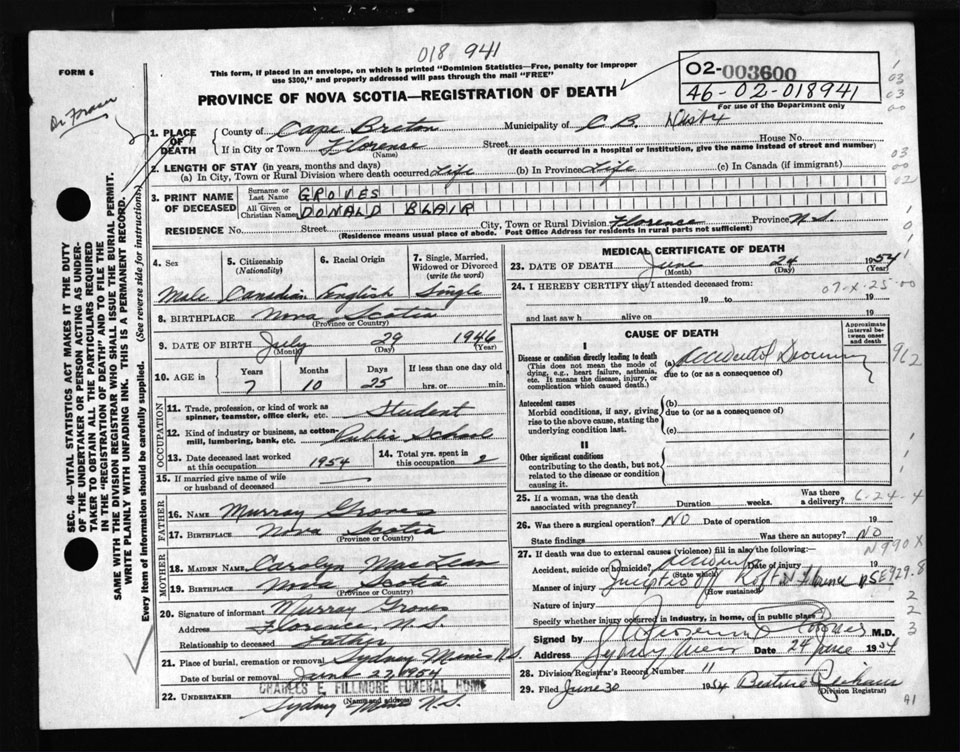 018 941
FORM 6
This form, if placed in an envelope, on which is printed "Dominion Statistics—Free, penalty for improper
use $300," and properly addressed will pass through the mail "FREE"
02-003600
46-02-018941
For use of the Department only
Dr Fraser
PROVINCE OF NOVA SCOTIA—REGISTRATION OF DEATH
1. PLACE OF DEATH
County of Cape Breton Municipality of C B.
If in City or Town Florence (Name) Street House No.
(If death occurred in a hospital or institution, give the name instead of street and number)
2. LENGTH OF STAY (in years, months and days)
(a) In City, Town or Rural Division where death occurred Life (b) In Province Life (c) In Canada (if immigrant)
3. PRINT NAME OF DECEASED
Surname or Last Name GROVES
All Given or Christian Names DONALD BLAIR
RESIDENCE No. Street City, Town or Rural Division Florence Province N.S.
(Residence means usual place of abode. Post Office Address for residents in rural parts not sufficient)
4. Sex Male
5. Citizenship (Nationality) Canadian
6. Racial Origin English
7. Single, Married, Widowed or Divorced (write the word) Single
8. BIRTHPLACE Nova Scotia
(Province or Country)
9. DATE OF BIRTH July 29 1946
(Month) (Day) (Year)
10. AGE is Years 7 Months 10 Days 25 If less than one day old hrs. or min.
OCCUPATION
11. Trade, profession, or kind of work as spinner, teamster, office clerk, etc. Student
12. Kind of industry or business, as cotton-mill, lumbering, bank, etc. Public School
13. Date deceased last worked at this occupation 1954
14. Total yrs. spent in this occupation 2
15. If married give name of wife or husband of deceased
FATHER
16. NAME Murray Groves
17. BIRTHPLACE Nova Scotia
(Province or Country)
MOTHER
18. MAIDEN NAME Carolyn MacLean
19. BIRTHPLACE Nova Scotia
(Province or Country)
20. Signature of informant Murray Groves
Address Florence, N.S.
Relationship to deceased Father
21. Place of burial, cremation or removal Sydney Mines N.S.
Date of burial or removal June 27, 1954
22. UNDERTAKER CHARLES E. FILLMORE FUNERAL HOME
(Name and address)
Sydney Mines N.S.
MEDICAL CERTIFICATE OF DEATH
23. DATE OF DEATH June 24 1954
(Month) (Day) (Year)
24. I HEREBY CERTIFY that I attended deceased from:
07-X-25-00
19 to 19
and last saw h alive on 19
CAUSE OF DEATH
Approximate interval between onset and death
I
Disease or condition directly leading to death
(This does not mean the mode of dying, e.g., heart failure, asthenia, etc. It means the disease, injury, or complication which caused death.)
(a) Accidental Drowning
due to (or as a consequence of)
962
Antecedent causes
Morbid conditions, if any, giving rise to the above cause, stating the underlying condition last.
(b)
due to (or as a consequence of)
(c)
II
Other significant conditions
contributing to the death, but not related to the disease or condition causing it.
25. If a woman, was the death associated with pregnancy? Duration weeks. Was there a delivery? 6-24-4
26. Was there a surgical operation? NO Date of operation 19
State findings Was there an autopsy? NO
N990X
27. If death was due to external causes (violence) fill in also the following:—
Accident, suicide or homicide? Accident (State which) Date of injury 19
Manner of injury (How sustained)
E929.8
Nature of injury
Specify whether injury occurred in industry, in home, or in public place
Signed by Coroner M.D.
Address Sydney Mines Date 24 June 1954
28. Division Registrar's Record Number 11
29. Filed June 30 1954 Beatrice
(Division Registrar)
SEC. 46—VITAL STATISTICS ACT MAKES IT THE DUTY
OF THE UNDERTAKER OR PERSON ACTING AS UNDER-
TAKER TO OBTAIN ALL THE PARTICULARS REQUIRED
IN THE "REGISTRATION OF DEATH" AND TO FILE THE
SAME WITH THE DIVISION REGISTRAR WHO SHALL ISSUE THE BURIAL PERMIT.
WRITE PLAINLY WITH UNFADING INK. THIS IS A PERMANENT RECORD.
Every item of information should be carefully supplied. (See reverse side for instructions.)